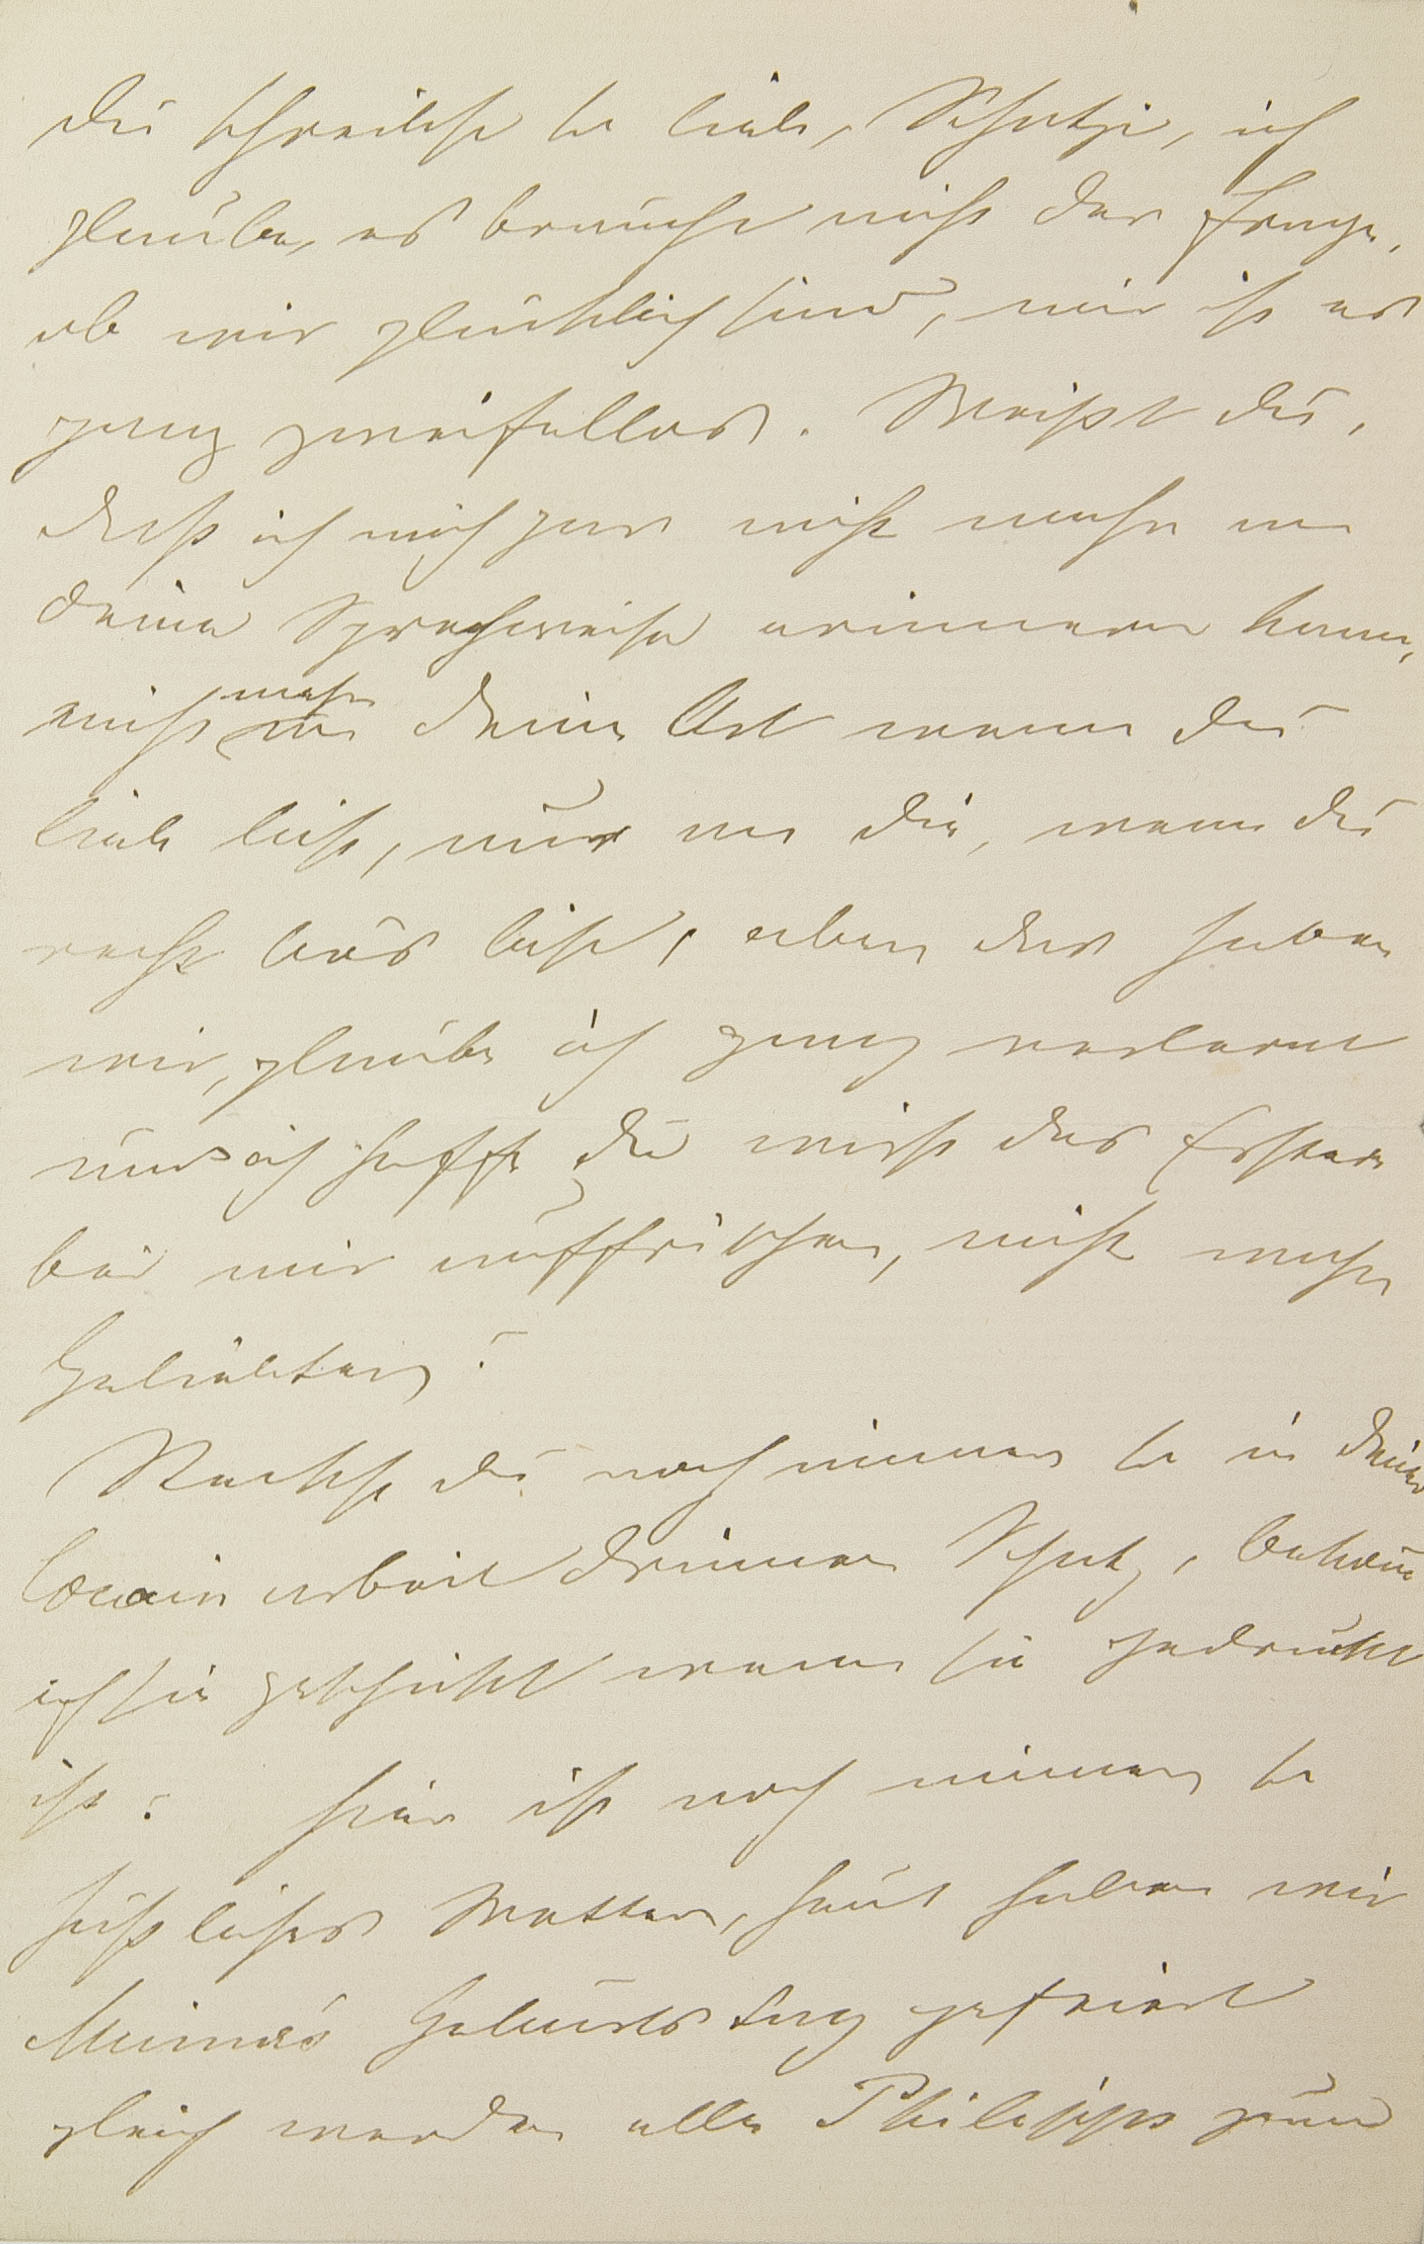 Du schreibst so lieb, Schatzi, ich
glaube, es braucht nicht der Frage,
ob wir glücklich sind, mir ist es
ganz zweifellos. Weißt Du,
daß ich mich gar nicht mehr an
Deine Sprechweise erinnern kann,
nicht mehr an Deine Art wenn Du
lieb bist, nur an die, wenn Du
recht bös bist, aber das haben
wir, glaube ich ganz verlernt
und ich hoffe Du wirst das Erstere
bei mir auffrischen, nicht wahr
Geliebter?
Steckst Du noch immer so in Deiner
Cocain arbeit drinnen Schatz, bekom
ich sie geschickt wenn sie gedruckt
ist? Hier ist noch immer so
häßliches Wetter, heut haben wir
Minnas Geburtstag gefeiert
gleich werden alle Philipps zum